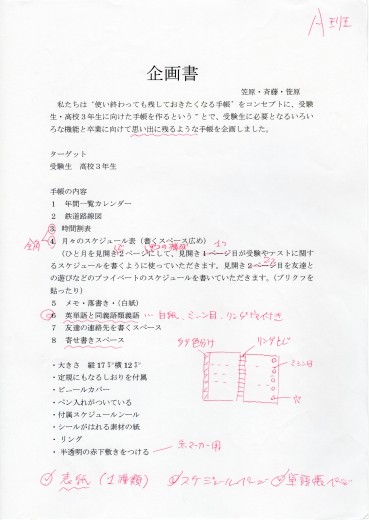 A班
企画書
笠原・斉藤・笹原
私たちは“使い終わっても残しておきたくなる手帳”をコンセプトに、受験
生・高校３年生に向けた手帳を作るということで、受験生に必要となるいろい
ろな機能と卒業に向けて思い出に残るような手帳を企画しました。
ターゲット
受験生　高校３年生
手帳の内容
１　年間一覧カレンダー
２　鉄道路線図
３　時間割表
４　月々のスケジュール表（書くスペース広め）
（ひと月を見開き２ページにして、見開き１ページ目が受験やテストに関す
るスケジュールを書くように使っていただきます。見開き２ページ目を友達と
の遊びなどのプライベートのスケジュールを書いていただきます。（プリクラを
貼ったり）
５　メモ・落書き・（白紙）
６　英単語と同義語類義語 … 白紙、ミシン目、リング　付き
７　友達の連絡先を書くスペース
８　寄せ書きスペース
タグ色分け
リングとじ
ミシン目
穴
・大きさ　縦17㌢横12㌢
・定規にもなるしおりを付属
・ビニールカバー
・ペン入れがついている
・付属スケジュールシール
・シールがはれる素材の紙
・リング
・半透明の赤下敷きをつける
赤マーカー用
表紙（１種類）
スケジュールページ
単語帳ページ